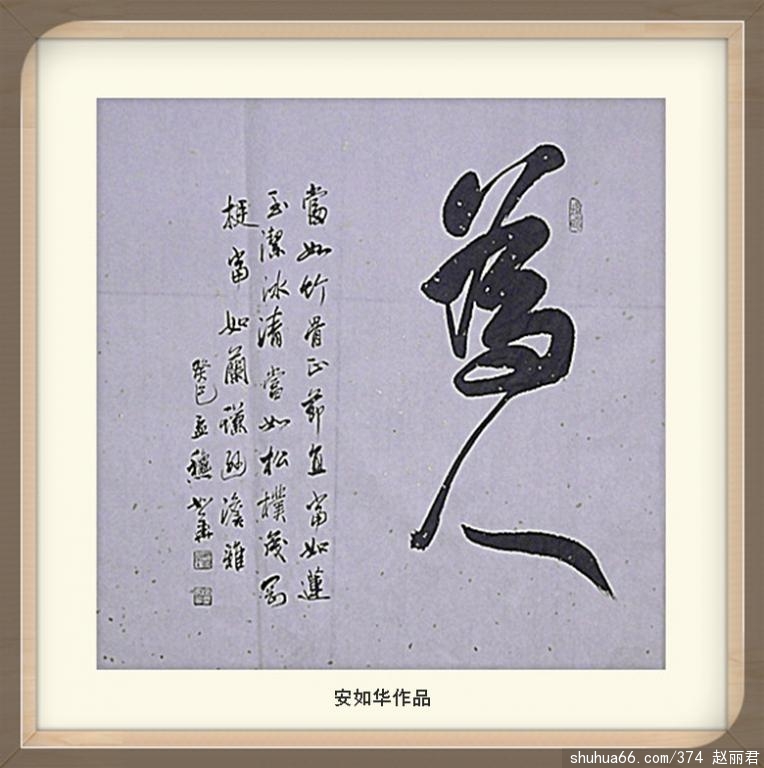 為人
當如竹骨正節直當如蓮
玉潔冰清當如松樸茂剛
挺當如蘭謙逊澹雅
癸巳孟穐如華
安如华作品
shuhua66.com/374 赵丽君